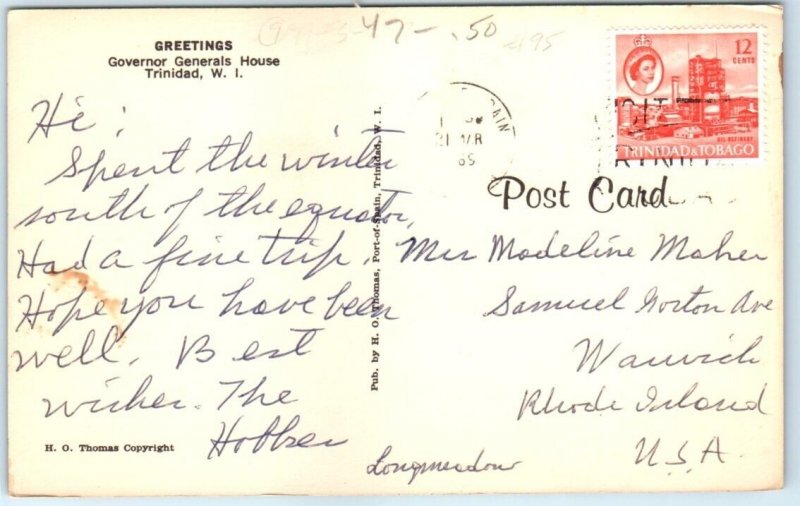 47-.50
495
GREETINGS
Governor Generals House
Trinidad, W. I.
Hi!
Spent the winter
south of the equator,
Had a fine trip.
Hope you have been
well. Best
wishes. The
H. O. Thomas Copyright
Pub. by H. O. Thomas, Port-of-Spain, Trinidad, W. I.
21 MR
65
12
CENTS
OIL REFINERY
TRINIDAD & TOBAGO
Post Card
Mrs Madeline Maher
Samuel Gorton Ave
Warwick
Rhode Island
U.S.A.
Longmeadow